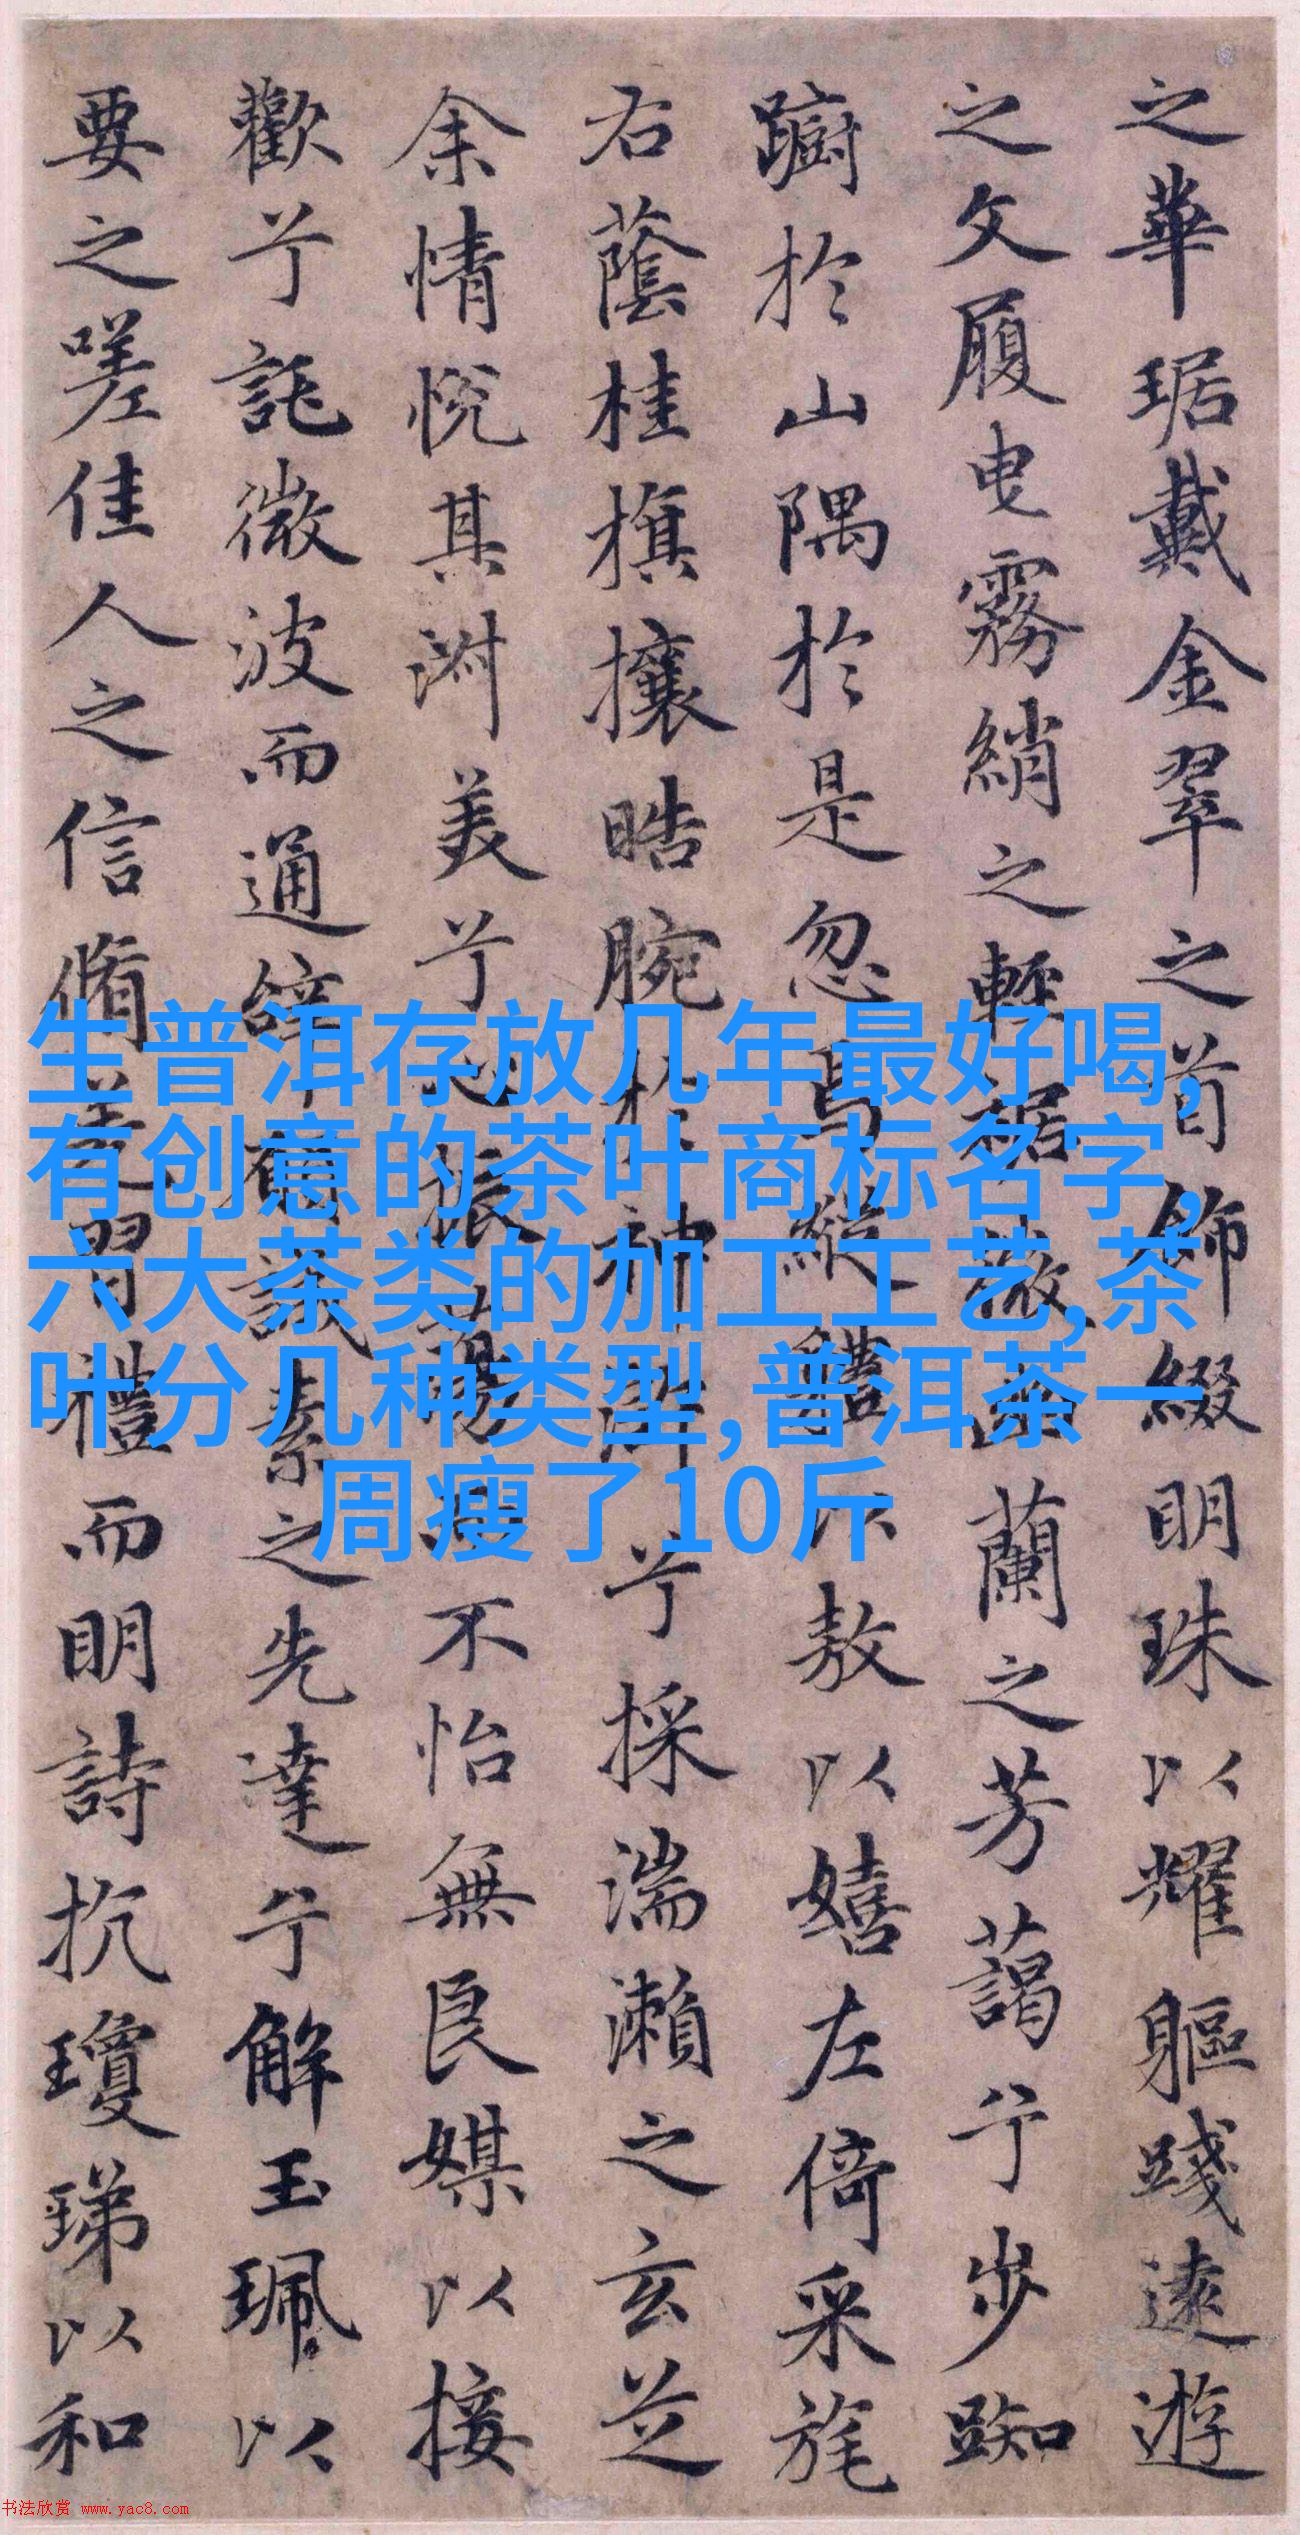 之華琚戴金翠之首飾綴明珠以耀軀踐遠遊
之文履曳霧綃之輕裾微幽蘭之芳藹兮步踟
躕於山隅於是忽焉縱體以敖以嬉左倚采旄
右蔭桂旗攘皓腕於神滸兮採湍瀨之玄芝
余情悅其淑美兮心振蕩而不怡無良媒以接
歡兮託微波而通辭願誠素之先達兮解玉珮以
要之嗟佳人之信脩羌習禮而明詩抗瓊珶以和
生普洱存放几年最好喝,
有创意的茶叶商标名字,
六大茶类的加工工艺,茶
叶分几种类型,普洱茶一
周瘦了10斤
书法欣赏 www.yac8.com